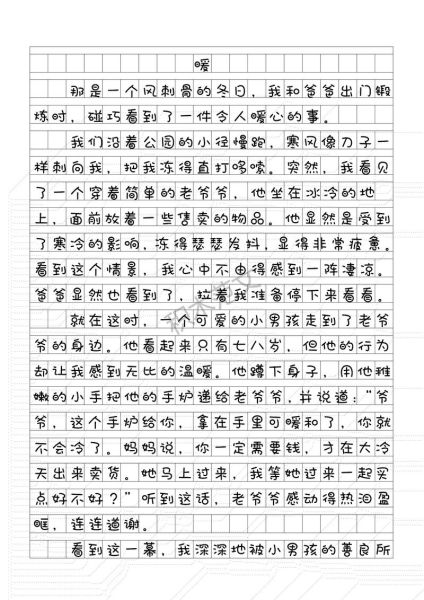 暖
那是一个风刺骨的冬日，我和爸爸出门锻
炼时，碰巧看到了一件令人暖心的事。
我们沿着公园的小径慢跑，寒风像刀子一
样刺向我，把我冻得直打哆嗦。突然，我看见
了一个穿着简单的老爷爷，他坐在冰冷的地
上，面前放着一些售卖的物品。他显然是受到
了寒冷的影响，冻得瑟瑟发抖，显得非常疲惫。
看到这个情景，我心中不由得感到一阵凄凉。
爸爸显然也看到了，拉着我准备停下来看看。
就在这时，一个可爱的小男孩走到了老爷
爷的身边。他看起来只有七八岁，但他的行为
却让我感到无比的温暖。他蹲下身子，用他稚
嫩的小手把他的手炉递给老爷爷，并说道：“爷
爷，这个手炉给你，拿在手里可暖和了，你就
不会冷了。妈妈说，你一定需要钱，才在大冷
天出来卖货。她马上过来，我等她过来一起买
点好不好？”听到这话，老爷爷感动得热泪盈
眶，连连道谢。
看到这一幕，我深深地被小男孩的善良所
积木范文